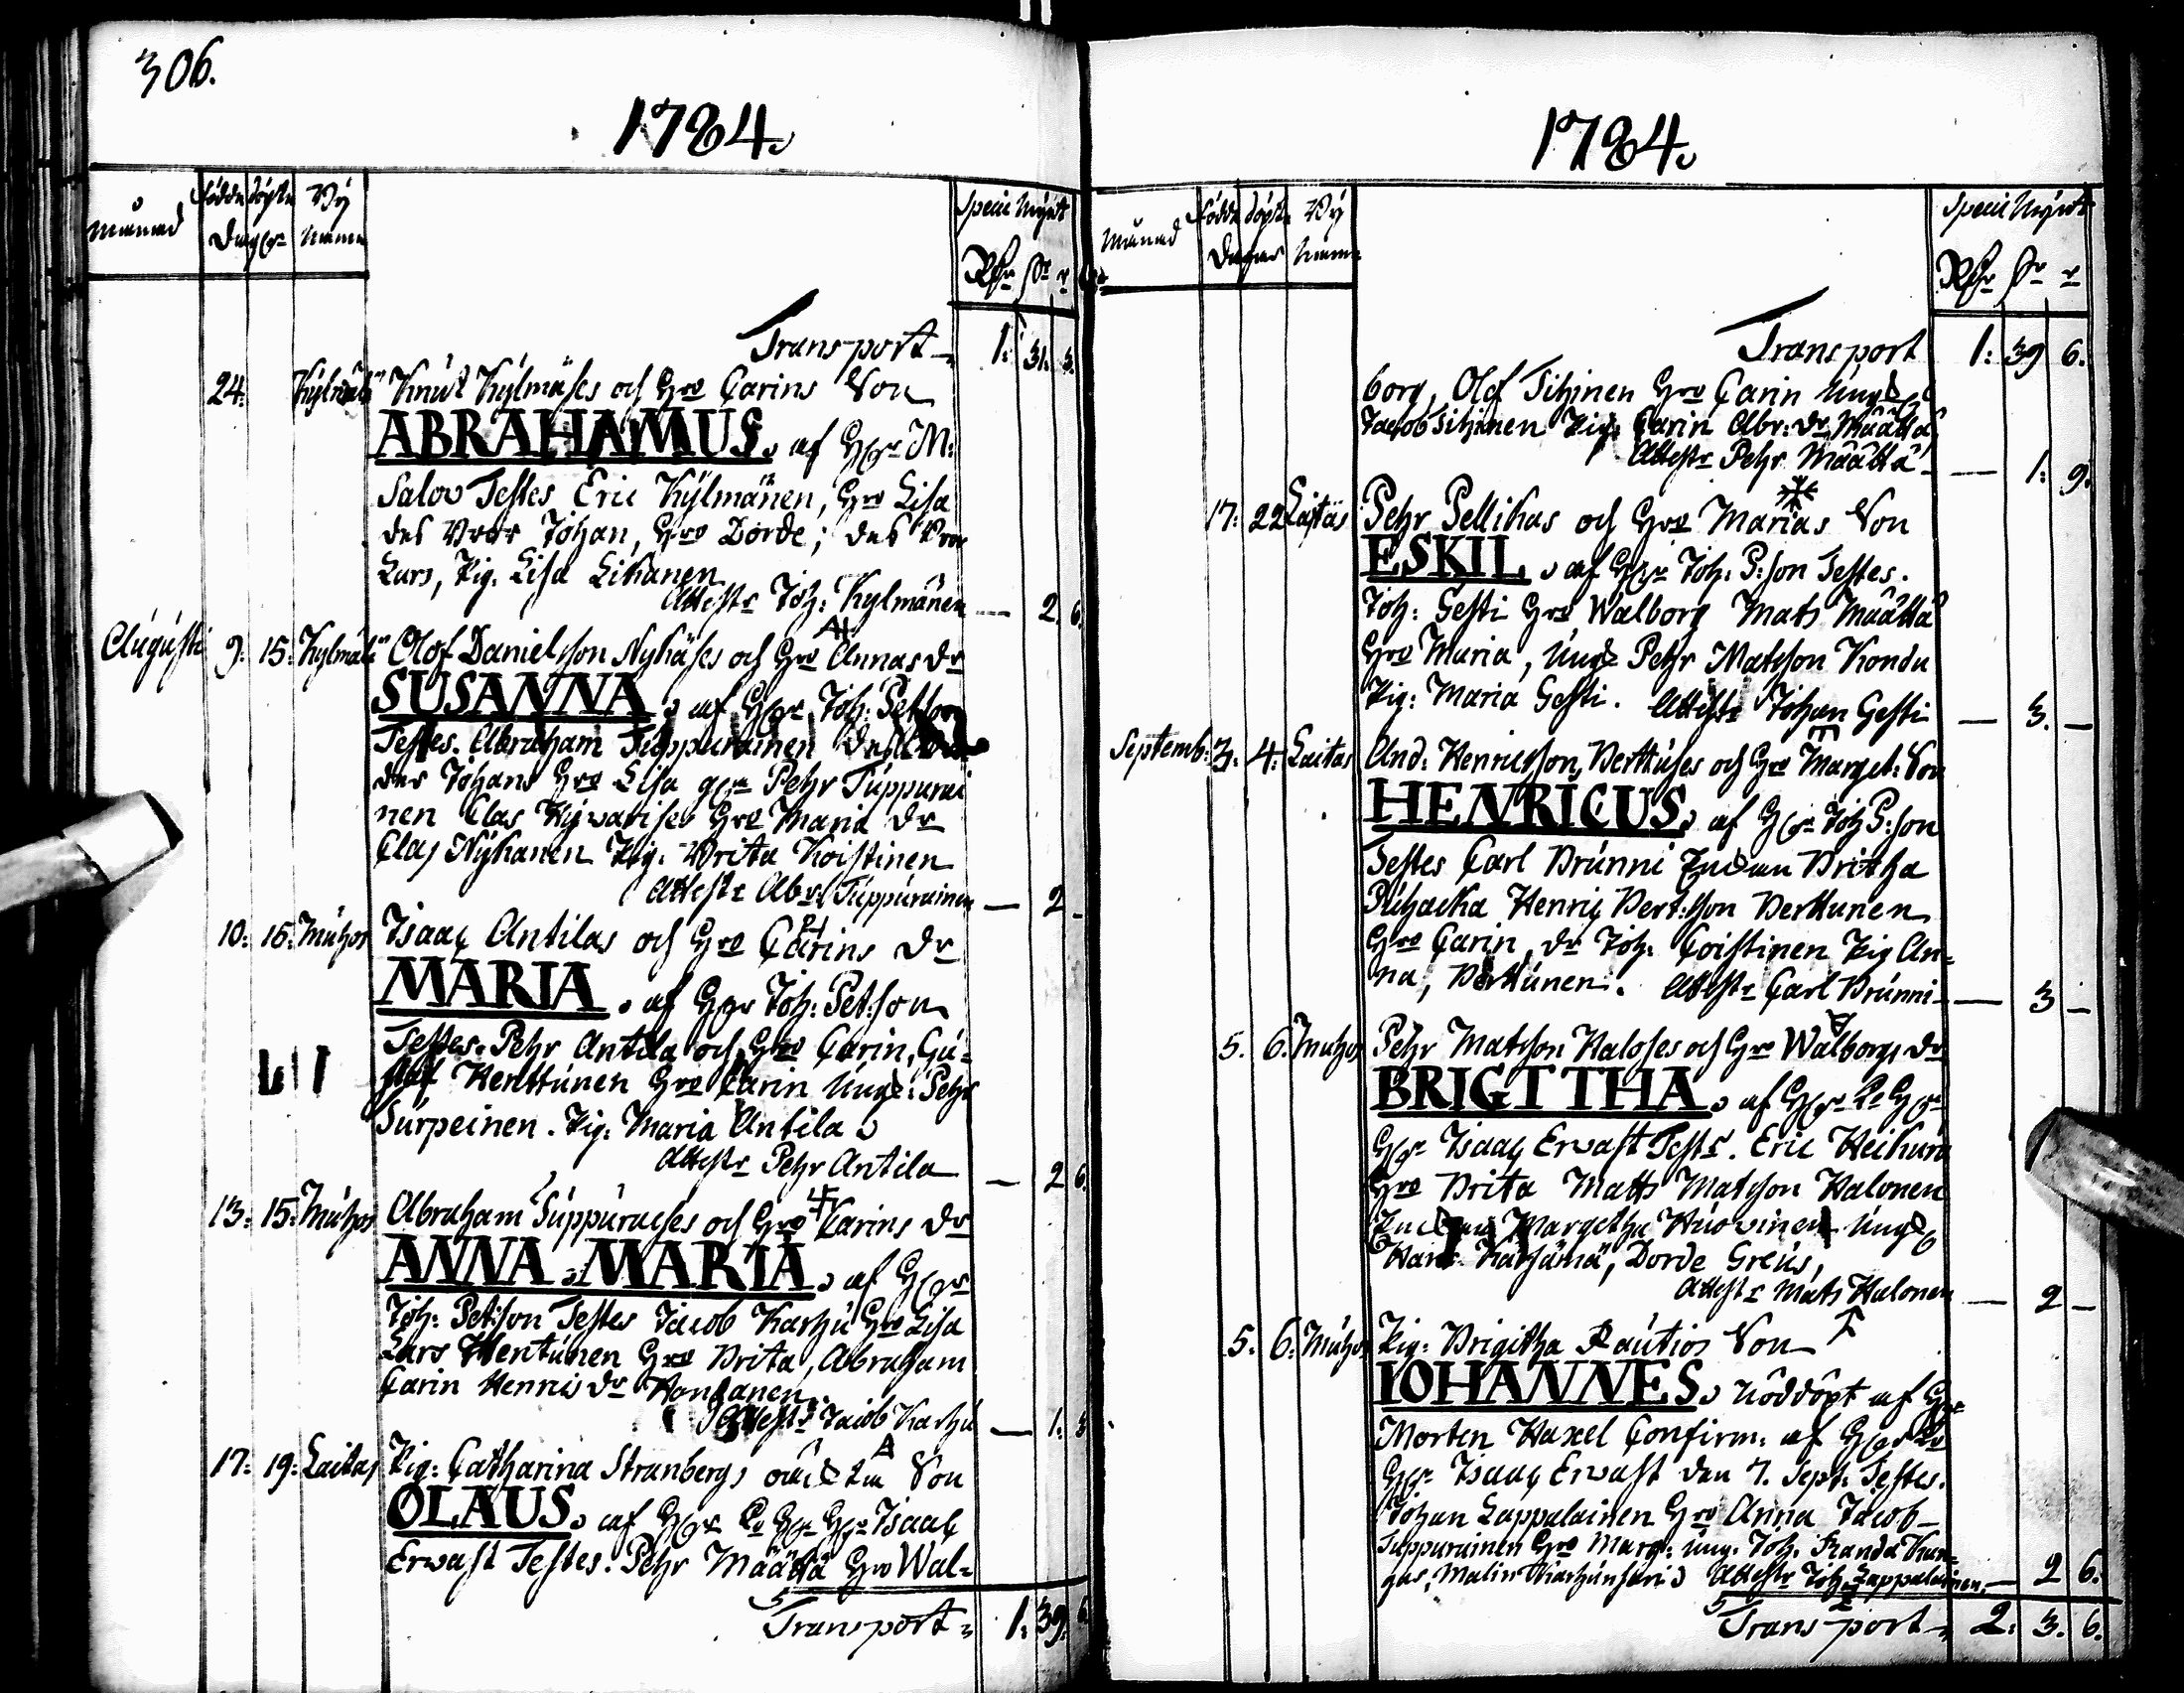 306.
1784.
månad
födde döpte
Dagar
By
Namn
Speciemynt
Rdr sk r
Transport 1: 31. 3.
24. Kylmälä Knut Kylmäses och Hro Carins Son
ABRAHAMUS. af Hr M:
Salov Testes Eric Kylmänen, Hro Lisa
des Bror Johan, Hro Dorde; des Bror
Lars, Pig. Lisa Likanen
Attestr Joh: Kylmänen — 2. 6.
Augusti 9. 15. Kylmälä Olof Danielsson Nykäses och Hro Annas Dr
SUSANNA. af Hr Joh: Petson
Testes. Abraham Tuppurainen
der Johans Hro Lisa Pehr Tuppurai
nen Clas Hyvarises Hro Maria Dr
Clas Nykanen Pig. Brita Koistinen
Attestr Abr. Tuppurainen — 2 -
10. 16. Muhos Isaac Antilas och Hro Carins Dr
MARIA. af Hr Joh: Pet:son
Testes. Pehr Antila och Hro Carin, Gu-
staf Henttunen Hro Carin Ungd: Pehr
Turpeinen. Pig: Maria Antila
Attestr Pehr Antila — 2 6.
13. 15. Muhos Abraham Tuppuraises och Hro Karins Dr
ANNA MARIA. af Hr
Joh: Pet:son Testes Jacob Karhu Hro Lisa
Lars Hentunen Hro Brita, Abraham
Carin Henrics Dr
Attestr Jacob Karhu — 1. 3
17. 19. Laitas Pig: Catharina Stranbergs oächta Son
OLAUS. af Hr Isaac
Erwast Testes. Pehr Määttä Hro Wal-
Transport 1. 39. 6.
1784.
månad
födde döpte
Dagar
By
Namn
Speciemynt
Rdr sk r
Transport 1: 39 6.
borg, Olof Tihinen Hro Carin Ungd
Jacob Tihinen Pig: Carin Abr: Dr Määttä
Attestr Pehr Määttä — 1. 9.
17. 22 Laitas Pehr Pellikas och Hro Marias Son
ESKIL. af Hr Joh: P:son Testes.
Joh: Gesti Hro Walborg Mats Määttä
Hro Maria, Ungd Pehr Matsson Kondu
Pig: Maria Gesti. Attestr Johan Gesti — 3. —
Septemb: 3. 4. Laitas And: Henricsson Verttuses och Hro Marget: Son
HENRICUS. af Hr Joh P:son
Testes Carl Brunni Enkan Britha
Puhacka Henric Bert:sson Verttunen
Hro Carin, Dr Joh: Coistinen Pig An-
na, Verttunen. Attestr Carl Brunni — 3 —
5. 6. Muhos Pehr Matsson Haloses och Hro Walborgs Dr
BRIGITTHA. af Hr
Hr Isaac Erwast Test. Eric Heikura
Hro Brita Matts Matsson Halonen
Enkan Margetha Huovinen Ungd
Hans Karjama, Dorde Greus,
Attestr Mats Halonen — 2 —
5. 6. Muhos Pig: Brigitha Rautios Son
IOHANNES. nöddöpt af Hr
Morten Haxel Confirm: af Hr
Hr Isaac Erwast den 7. Sept. Testes.
Johan Lappalainen Hro Anna Jacob
Tuppurainen Hro Marg: ung. Joh:
gas, Malin Attestr Joh. Lappalainen — 2 6.
Transport 2. 3. 6.